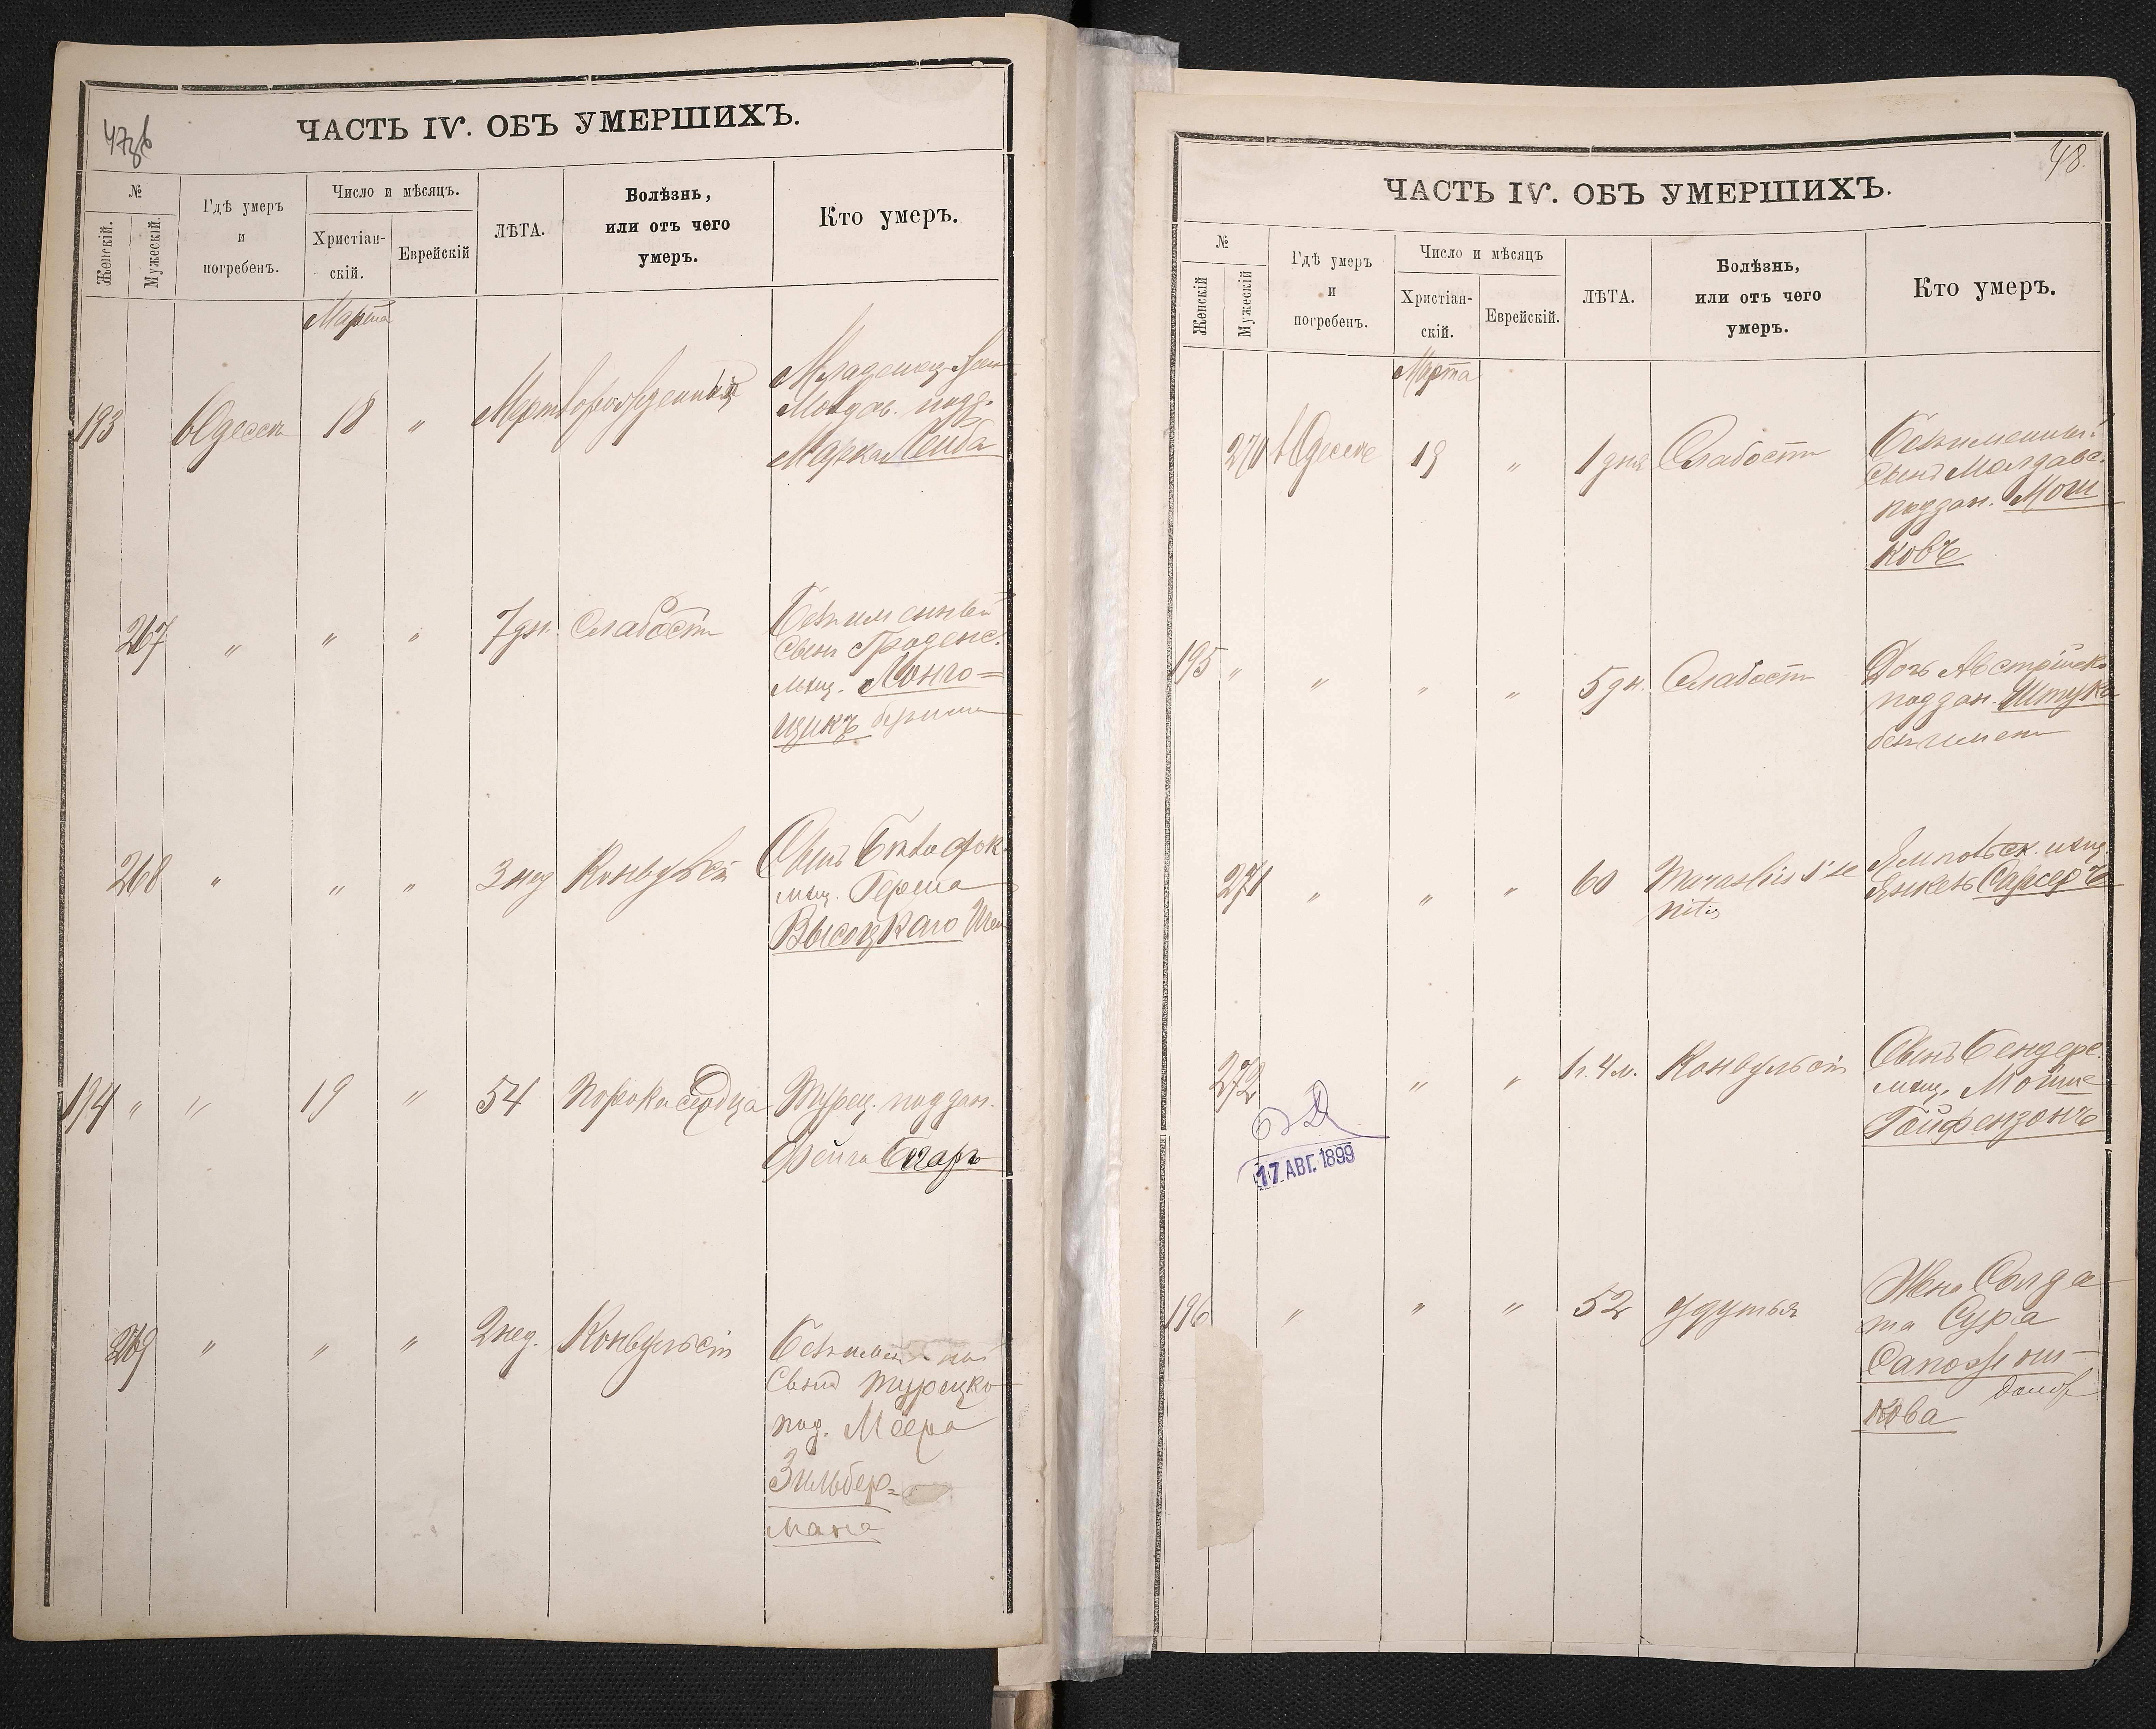 47об
ЧАСТЬ IV. ОБЪ УМЕРШИХЪ.
№
Женскій.
Мужескій.
Гдѣ умеръ
и
погребенъ.
Число и мѣсяцъ.
Христіан-
скій.
Еврейскій
ЛѢТА.
Болѣзнь,
или отъ чего
умеръ.
Кто умеръ.
Марта
193 вОдессѣ 18 " Мертворожденный Младенец
Молдав. подд.
Марка Лейба
267 " " " 7 дн. Слабости Безименный
Сынъ Гроденс.
мѣщ. Лонго=
цикъ
268 " " " 3 нед Конвульсіи Сынъ
мѣщ. Герша
Высоцкаго
194 " " 19 " 54 Порока сердца Турец. поддан.
Фейга
269 " " " 2 нед. Конвульсіи
Сынъ турецко
под. Меера
Зильбер=
мана
48.
ЧАСТЬ IV. ОБЪ УМЕРШИХЪ.
№
Женскій
Мужескій
Гдѣ умеръ
и
погребенъ.
Число и мѣсяцъ
Христіан-
скій.
Еврейскій.
ЛѢТА.
Болѣзнь,
или отъ чего
умеръ.
Кто умеръ.
Марта
270 вОдессѣ 19 " 1 дня Слабости Безименный
Сынъ Молдавс.
поддан. Мош
ковъ
195 " " " " 5 дн. Слабости Дочь Австрійско
поддан. Штука
безъ имени
271 " " " 60 Marasmus se
nilis
Ямпольск. мѣщ.
Янкель
272 " " 1 г. 4 м. Конвульсіи Сынъ Бендерс.
мѣщ. Мойше
Гойфензонъ
17 АВГ. 1899
196 " " " 52 Удушья Жена Солда
та Сура
Сапожни-
кова